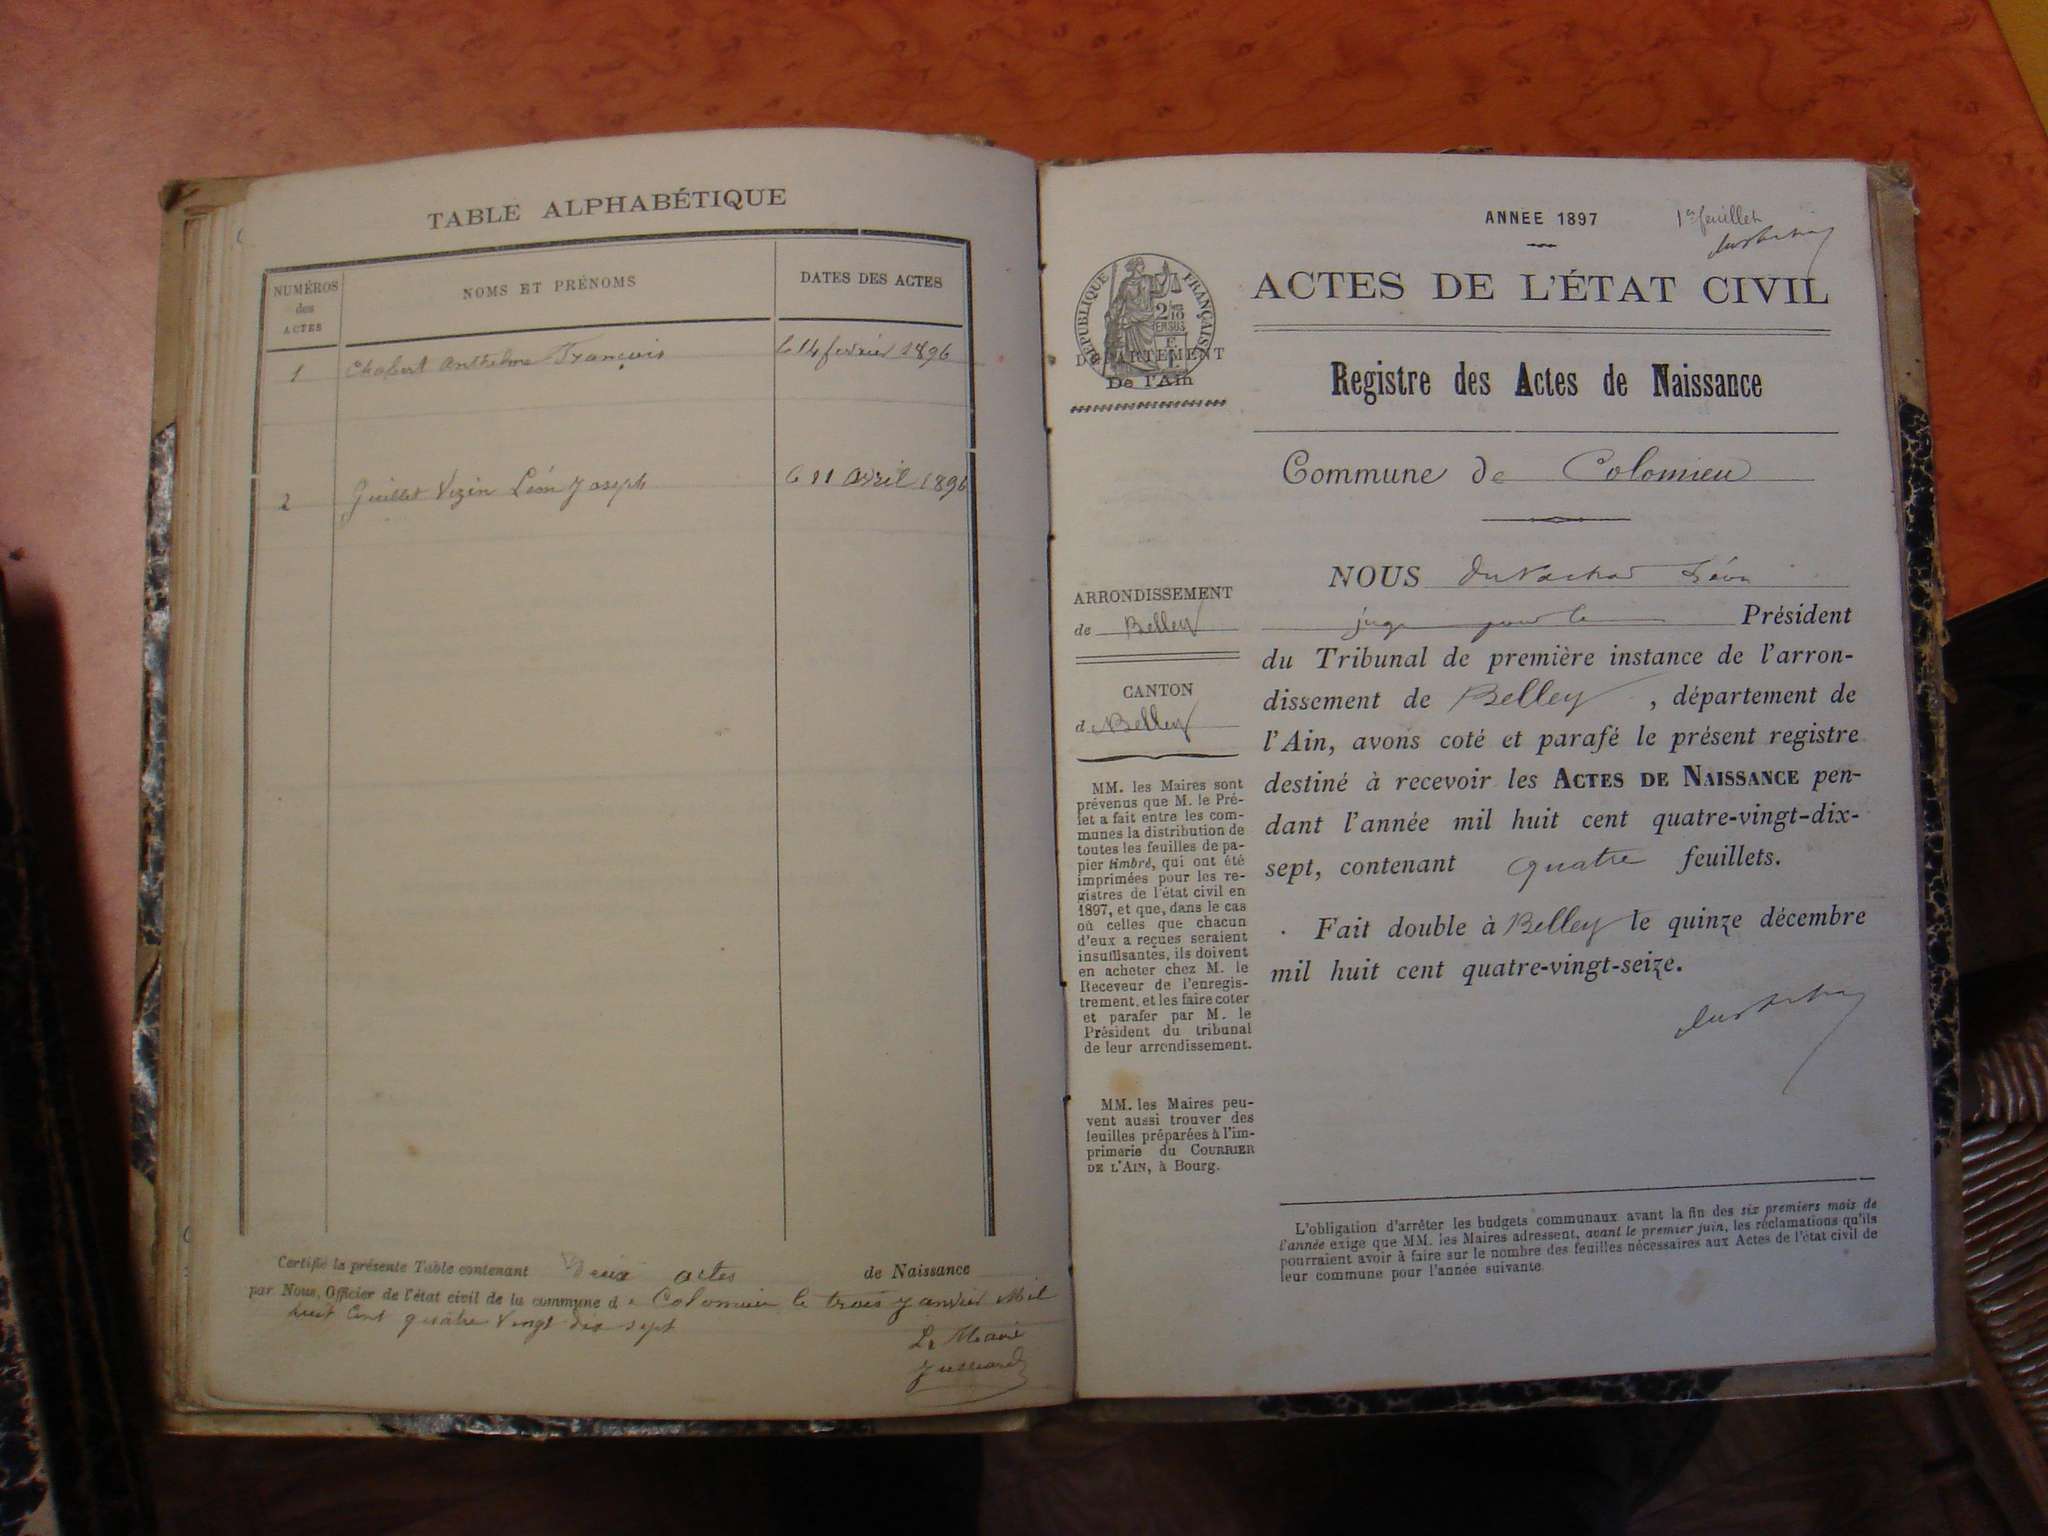 TABLE ALPHABÉTIQUE
NUMÉROS
des
ACTES
NOMS ET PRÉNOMS
DATES DES ACTES
1 Chabert Anthelme François le 14 fevrier 1896
2 Guillet Vezin Léon Joseph le 11 avril 1896
Certifié la présente Table contenant Deux actes de Naissance
par Nous, Officier de l'état civil de la commune de Colomieu le trois Janvier Mil
huit Cent quatre Vingt dix sept
Le Maire
ANNÉE 1897
1er feuillet
RÉPUBLIQUE FRANÇAISE
DÉPARTEMENT
De l'Ain
ACTES DE L'ÉTAT CIVIL
Registre des Actes de Naissance
Commune de Colomieu
ARRONDISSEMENT
de Belley
CANTON
de Belley
MM. les Maires sont
prévenus que M. le Pré-
fet a fait entre les com-
munes la distribution de
toutes les feuilles de pa-
pier timbré, qui ont été
imprimées pour les re-
gistres de l'état civil en
1897, et que, dans le cas
où celles que chacun
d'eux a reçues seraient
insuffisantes, ils doivent
en acheter chez M. le
Receveur de l'enregis-
trement, et les faire coter
et parafer par M. le
Président du tribunal
de leur arrondissement.
MM. les Maires peu-
vent aussi trouver des
feuilles préparées à l'im-
primerie du COURRIER
DE L'AIN, à Bourg.
NOUS Léon
juge pour le Président
du Tribunal de première instance de l'arron-
dissement de Belley, département de
l'Ain, avons coté et parafé le présent registre
destiné à recevoir les ACTES DE NAISSANCE pen-
dant l'année mil huit cent quatre-vingt-dix-
sept, contenant quatre feuillets.
Fait double à Belley le quinze décembre
mil huit cent quatre-vingt-seize.
L'obligation d'arrêter les budgets communaux avant la fin des six premiers mois de
l'année exige que MM. les Maires adressent, avant le premier juin, les réclamations qu'ils
pourraient avoir à faire sur le nombre des feuilles nécessaires aux Actes de l'état civil de
leur commune pour l'année suivante.